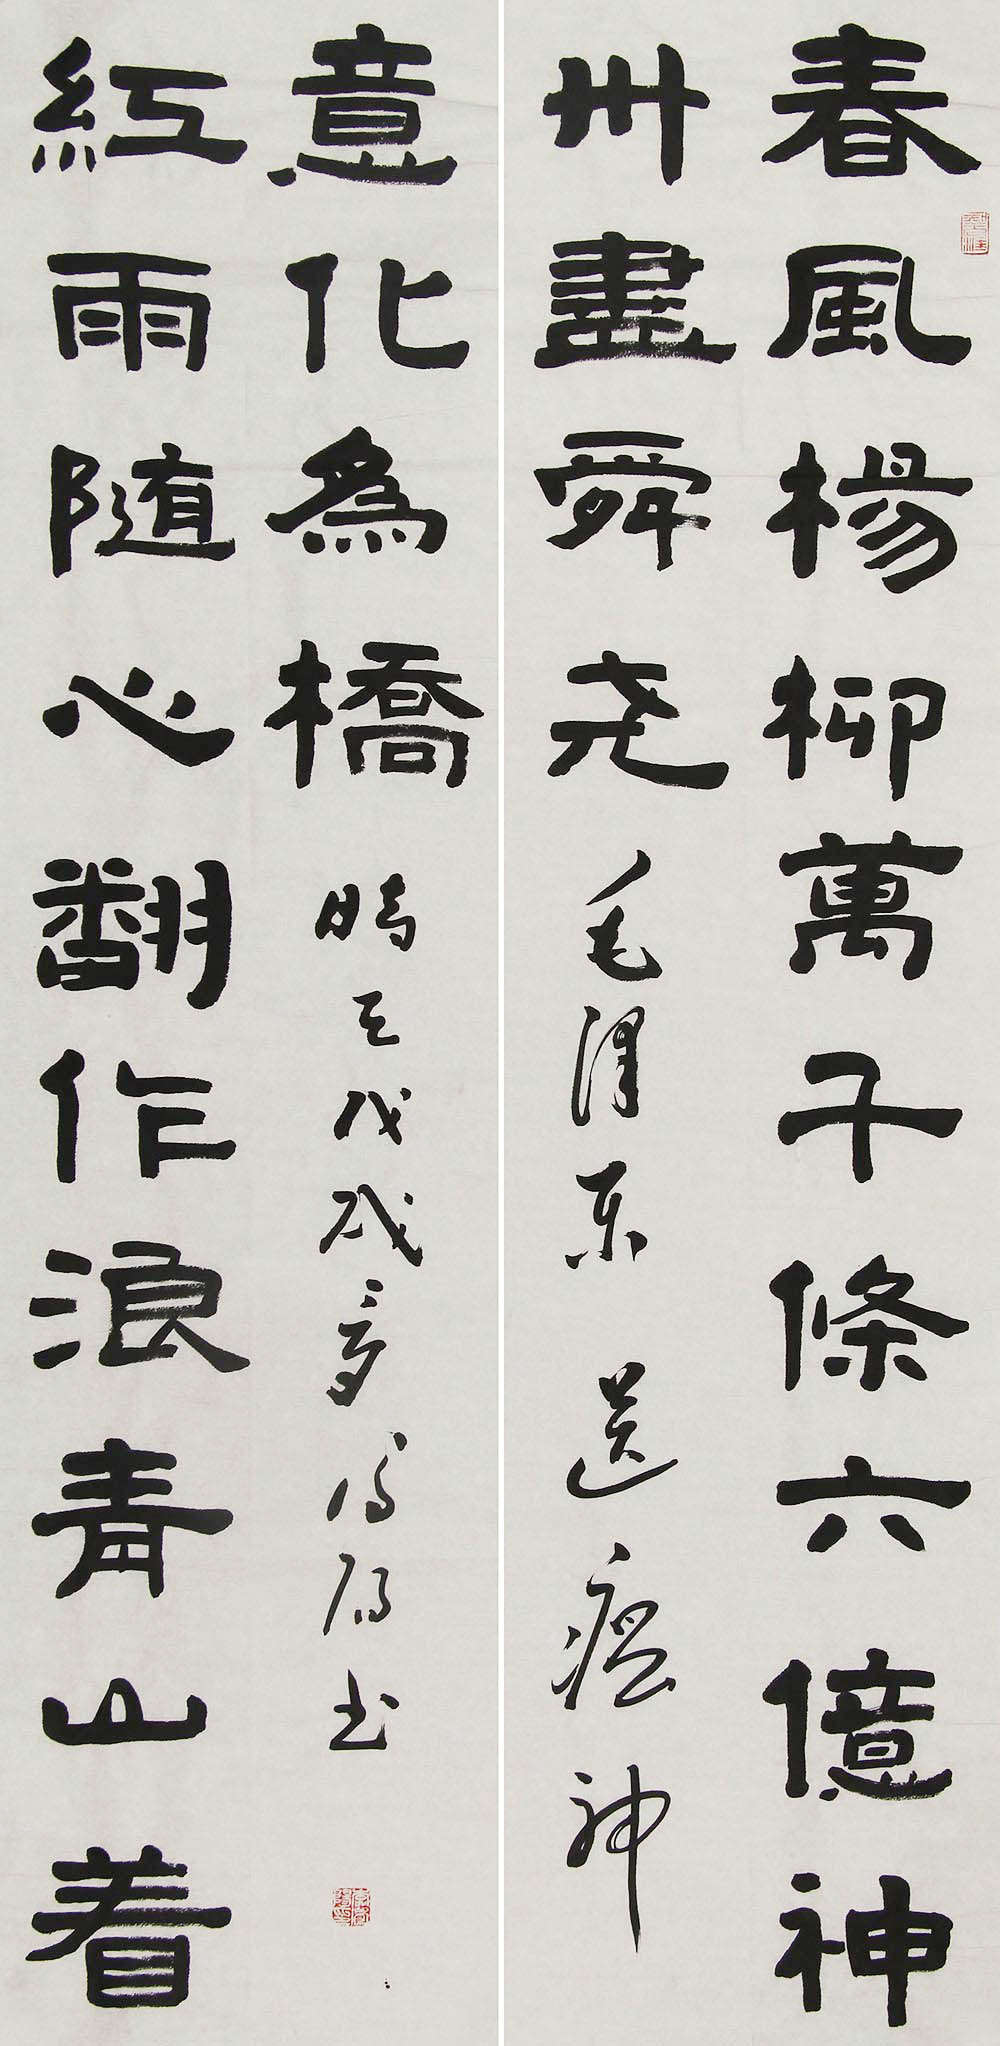 春風楊柳萬千條六億神
州盡舜尧 毛泽东 送瘟神
紅雨随心翻作浪青山着
意化為橋 時在戊戌夏 书